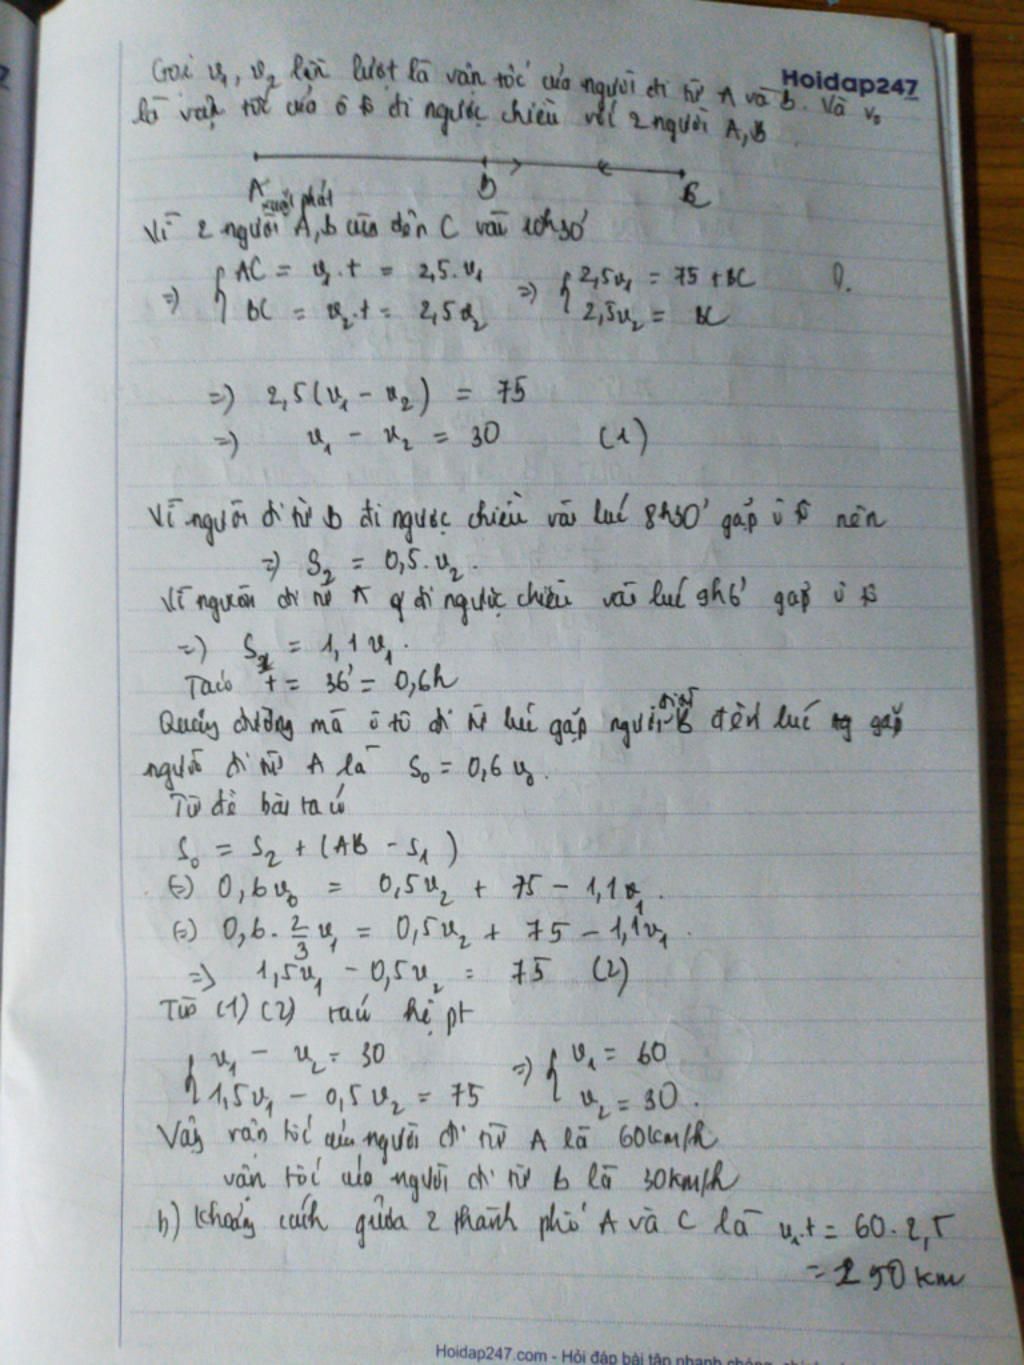 Gọi v₁, v₂ lần lượt là vận tốc của người đi từ A và B. Và v₀
Hoidap247
là vận tốc của ô tô đi ngược chiều với 2 người A, B
A B C
xuất phát
Vì 2 người A, B đến C vào 10h30'
=> { AC = v₁.t = 2,5.v₁ => { 2,5v₁ = 75 + BC
BC = v₂.t = 2,5v₂ 2,5v₂ = BC
=> 2,5(v₁ - v₂) = 75
=> v₁ - v₂ = 30 (1)
Vì người đi từ B đi ngược chiều vào lúc 8h30' gặp ô tô nên
=> S₂ = 0,5.v₂.
Vì người đi từ A đi ngược chiều vào lúc 9h6' gặp ô tô
=> S₁ = 1,1v₁.
Ta có t = 36' = 0,6h
Quãng đường mà ô tô đi từ lúc gặp người đi từ B đến lúc gặp
người đi từ A là S₀ = 0,6v₀.
Từ đề bài ta có
S₀ = S₂ + (AB - S₁)
(=) 0,6v₀ = 0,5v₂ + 75 - 1,1v₁.
(=) 0,6.2/3v₁ = 0,5v₂ + 75 - 1,1v₁.
=> 1,5v₁ - 0,5v₂ = 75 (2)
Từ (1) (2) ta có hệ pt
{ v₁ - v₂ = 30 => { v₁ = 60
1,5v₁ - 0,5v₂ = 75 v₂ = 30.
Vậy vận tốc của người đi từ A là 60km/h
vận tốc của người đi từ B là 30km/h
b) Khoảng cách giữa 2 thành phố A và C là v₁.t = 60.2,5
= 150 km
Hoidap247.com - Hỏi đáp bài tập nhanh chóng,